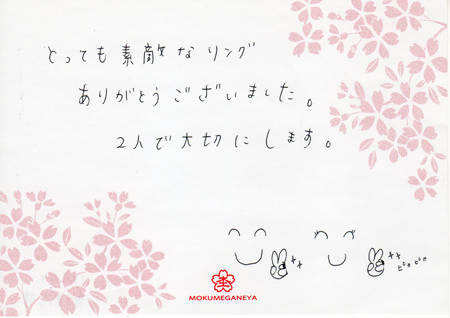 とっても素敵なリング
ありがとうございました。
2人で大切にします。
MOKUMEGANEYA